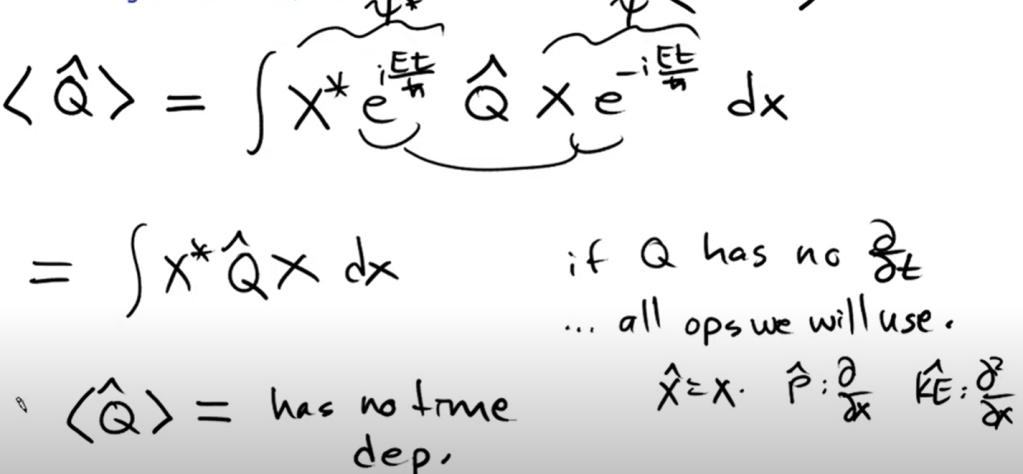 ψ* ψ
⟨Q̂⟩ = ∫ X* e^{iEt/ħ} Q̂ X e^{-iEt/ħ} dx
= ∫ X* Q̂ X dx if Q has no ∂/∂t
... all ops we will use.
x̂ = x. p̂ : ∂/∂x K̂E : ∂²/∂x
⟨Q̂⟩ = has no time
dep.